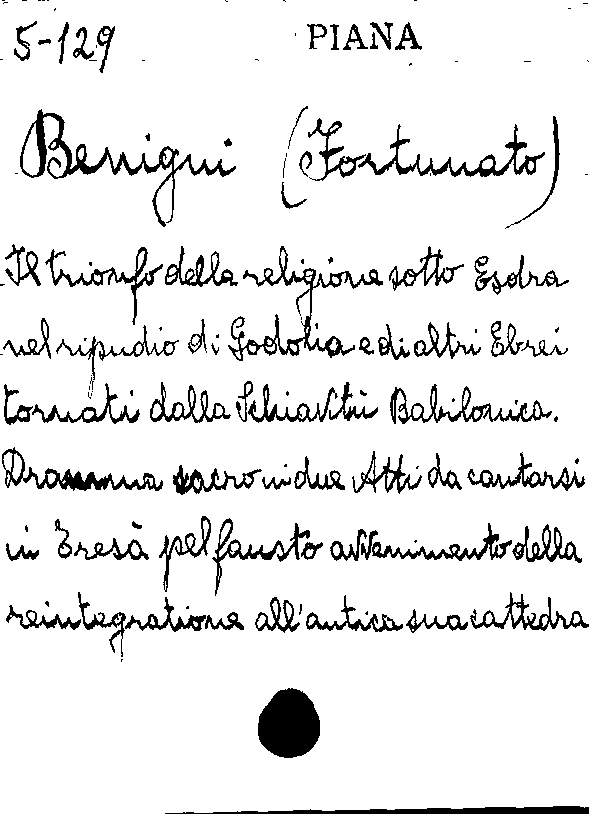 5-129 PIANA
Benigni (Fortunato)
Il trionfo della religione sotto Esdra
nel ripudio di Godolia e di altri Ebrei
tornati dalla Schiavitù Babilonica.
Dramma sacro in due Atti da cantarsi
in Eresà pel fausto avvenimento della
reintegratione all'antica sua cattedra